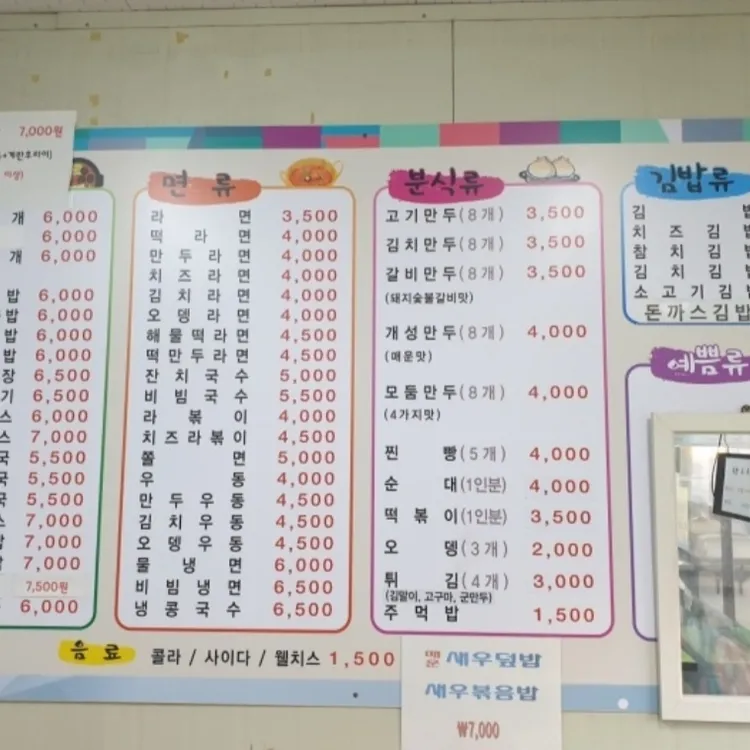 7,000원
+계란후라이)
이상)
개 6,000
6,000
개 6,000
밥 6,000
밥 6,000
밥 6,000
밥 6,000
장 6,500
기 6,500
스 6,000
스 7,000
국 5,500
국 5,500
국 5,500
스 7,000
밥 7,000
밥 7,000
7,500원
6,000
면 류
라 면 3,500
떡 라 면 4,000
만 두 라 면 4,000
치 즈 라 면 4,000
김 치 라 면 4,000
오 뎅 라 면 4,000
해 물 떡 라 면 4,500
떡 만 두 라 면 4,500
잔 치 국 수 5,000
비 빔 국 수 5,500
라 볶 이 4,000
치 즈 라 볶 이 4,500
쫄 면 5,000
우 동 4,000
만 두 우 동 4,500
김 치 우 동 4,500
오 뎅 우 동 4,500
물 냉 면 6,000
비 빔 냉 면 6,500
냉 콩 국 수 6,500
분식류
고기만두(8개) 3,500
김치만두(8개) 3,500
갈비만두(8개) 3,500
(돼지숯불갈비맛)
개성만두(8개) 4,000
(매운맛)
모둠만두(8개) 4,000
(4가지맛)
찐 빵(5개) 4,000
순 대(1인분) 4,000
떡 볶 이(1인분) 3,500
오 뎅(3개) 2,000
튀 김(4개) 3,000
(김말이, 고구마, 군만두)
주 먹 밥 1,500
김밥류
김 밥
치 즈 김 밥
참 치 김 밥
김 치 김 밥
소 고 기 김 밥
돈까스김밥
예쁨류
음 료 콜라 / 사이다 / 웰치스 1,500
매운 새우덮밥
새우볶음밥
₩7,000